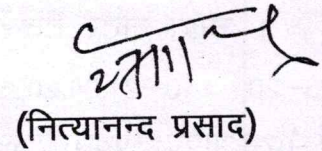 (नित्यानन्द प्रसाद)